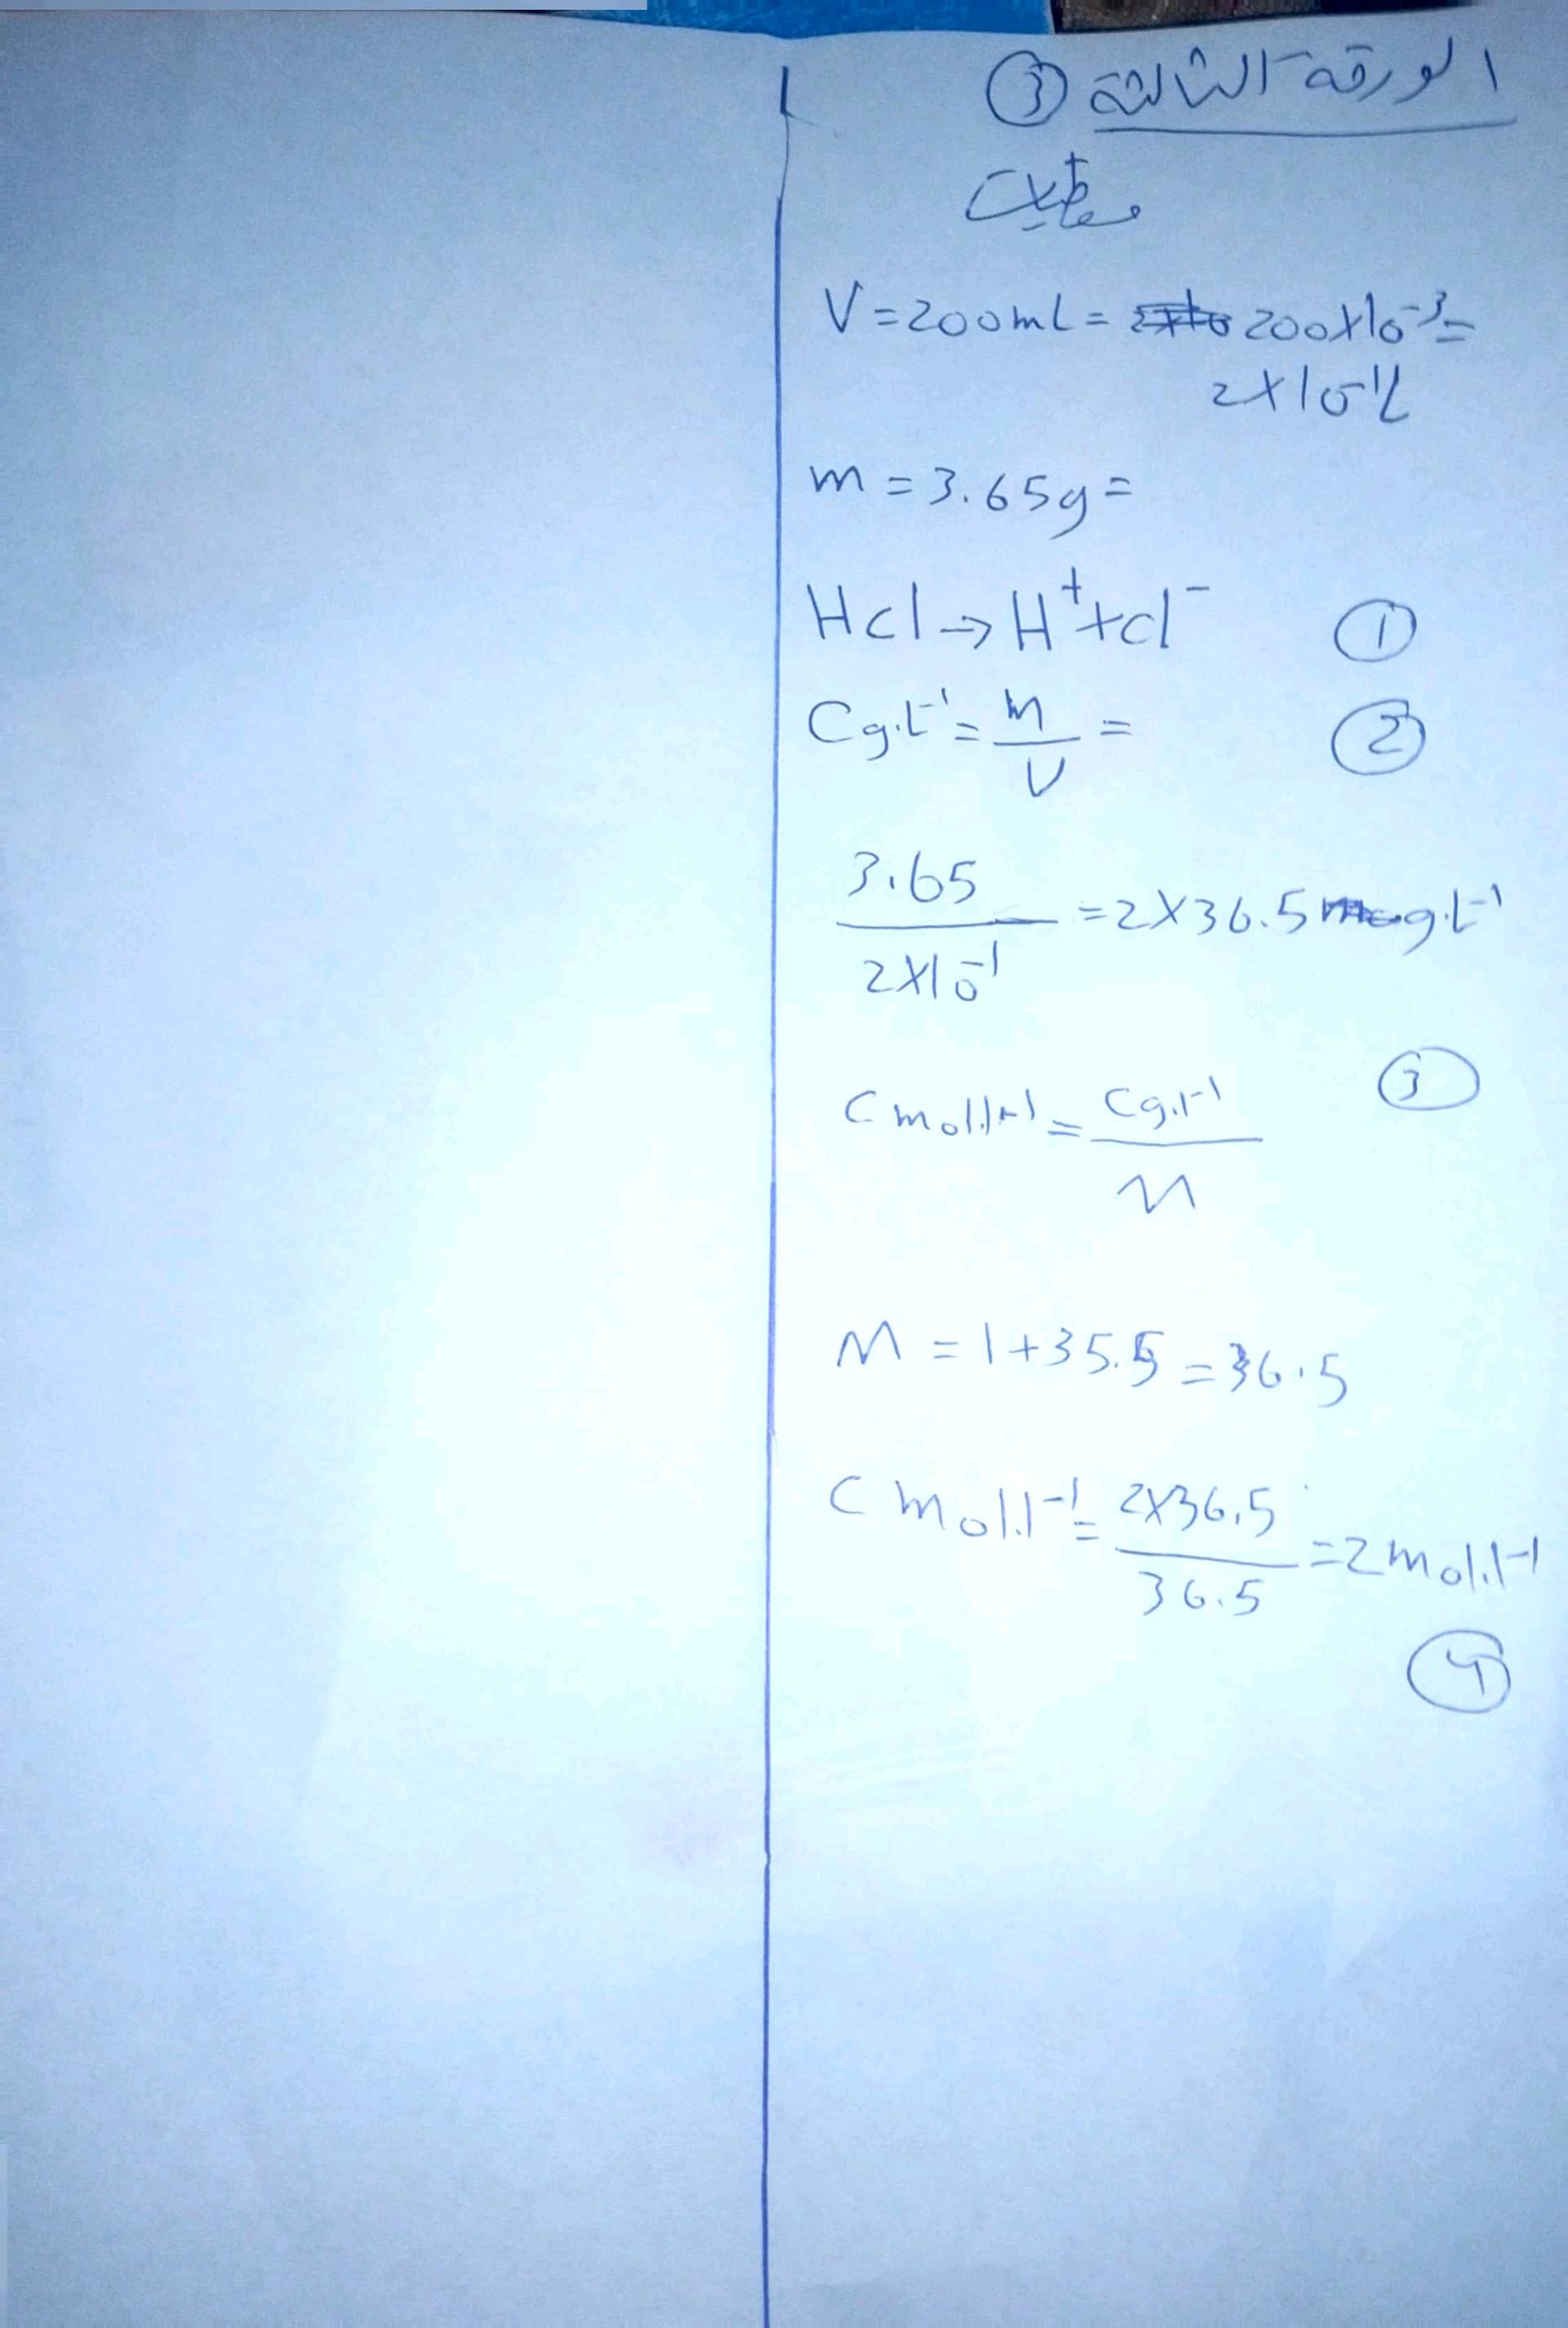 الورقة الثالثة ③
معطيات
V = 200mL = 200×10⁻³ =
2×10⁻¹L
m = 3.65g =
Hcl → H⁺ + cl⁻ ①
Cg.L⁻¹ = m/V = ②
3.65/2×10⁻¹ = 2×36.5 g.L⁻¹
③
Cmol.l⁻¹ = Cg.l⁻¹/M
M = 1+35.5 = 36.5
Cmol.l⁻¹ = 2×36.5/36.5 = 2mol.l⁻¹
④